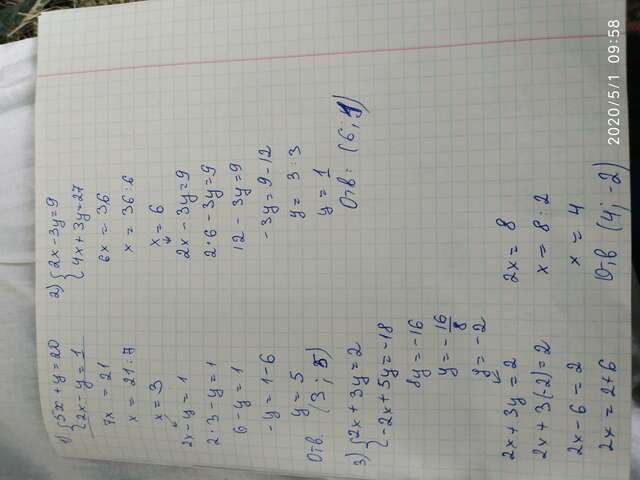 1) {5x + y = 20
{2x - y = 1
7x = 21
x = 21 : 7
x = 3
2x - y = 1
2 · 3 - y = 1
6 - y = 1
-y = 1 - 6
y = 5
Отв. (3 ; 5)
2) {2x - 3y = 9
{4x + 3y = 27
6x = 36
x = 36 : 6
x = 6
2x - 3y = 9
2 · 6 - 3y = 9
12 - 3y = 9
-3y = 9 - 12
y = 3 : 3
y = 1
Отв : (6 ; 1)
3) {2x + 3y = 2
{-2x + 5y = -18
8y = -16
y = -16/8
y = -2
2x + 3y = 2
2x + 3(-2) = 2
2x - 6 = 2
2x = 2 + 6
2x = 8
x = 8 : 2
x = 4
Отв (4 ; -2)
2020/5/1 09:58